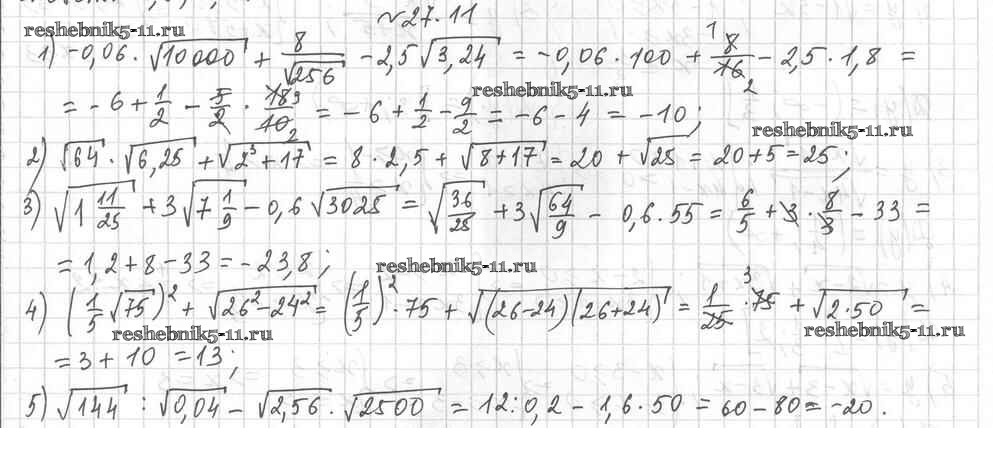 №27.11
reshebnik5-11.ru
1) -0,06 · √10000 + 8/√256 - 2,5 √3,24 = -0,06 · 100 + 8/16 - 2,5 · 1,8 =
reshebnik5-11.ru
= -6 + 1/2 - 5/2 · 18/10 = -6 + 1/2 - 9/2 = -6 - 4 = -10;
reshebnik5-11.ru
2) √64 · √6,25 + √(2³+17) = 8 · 2,5 + √(8+17) = 20 + √25 = 20+5 = 25;
3) √(1 11/25) + 3√(7 1/9) - 0,6 √3025 = √(36/25) + 3√(64/9) - 0,6 · 55 = 6/5 + 3 · 8/3 - 33 =
= 1,2 + 8 - 33 = -23,8;
reshebnik5-11.ru
4) (1/5 √75)² + √(26²-24²) = (1/5)² · 75 + √((26-24)(26+24)) = 1/25 · 75 + √(2·50) =
reshebnik5-11.ru
reshebnik5-11.ru
= 3 + 10 = 13;
5) √144 : √0,04 - √2,56 · √2500 = 12:0,2 - 1,6 · 50 = 60 - 80 = -20.